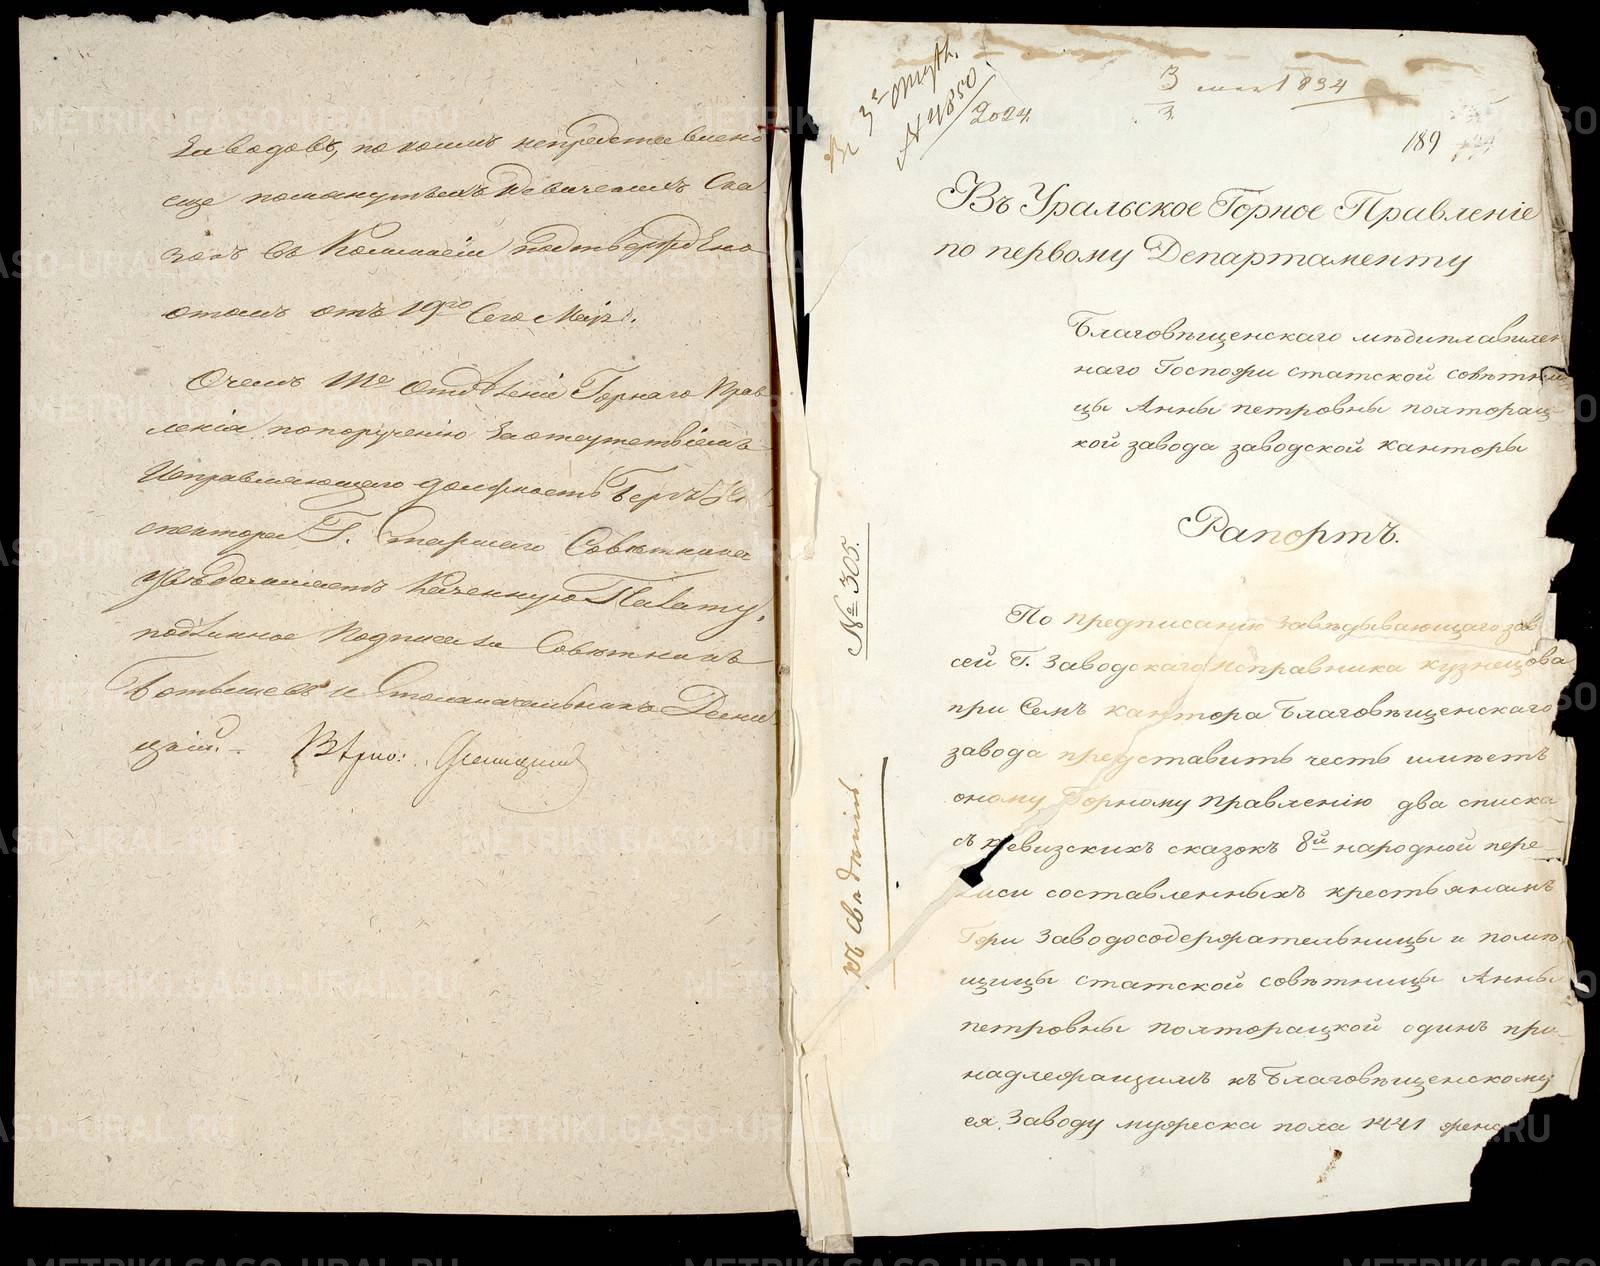 заводовъ, по коимъ непредставлено
еще помянутыхъ Ревизскихъ Ска
зокъ въ Коммисіи подтверждено
отомъ отъ 19го Сего Маія.
Очемъ 1е отдѣленіе Горнаго Прав
ленія попорученію заотсутствіемъ
Исправляющаго должность Бергъ Ин
спектора Г. Старшаго Совѣтника
увѣдомляетъ Казенную Палату,
подлинное подписали Совѣтникъ
и Столоначальникъ
Вѣрно:
3 мая 1834
3
№ 4850
2024
189
Въ Уральское Горное Правленіе
по первому Департаменту
Благовѣщенскаго мѣдиплавилен
наго Госпожи статской совѣтни
цы Анны петровны полторац
кой завода заводской канторы
Рапортъ.
№ 305.
По предписанію завѣдывающаго зав
сей Г. Заводскаго исправника кузнецова
при семъ кантора Благовѣщенскаго
завода представить честь имѣетъ
оному Горному правленію два списка
съ ревизскихъ сказокъ 8й народной пере
писи составленныхъ крестьянамъ
Гжи Заводосодержательницы и помѣ
щицы статской совѣтницы Анны
петровны полторацкой одинъ при
надлежащимъ къ Благовѣщенскому
ея Заводу мужеска пола 1441 женс
къ свѣдѣнію
METRIKI.GASO-URAL.RU